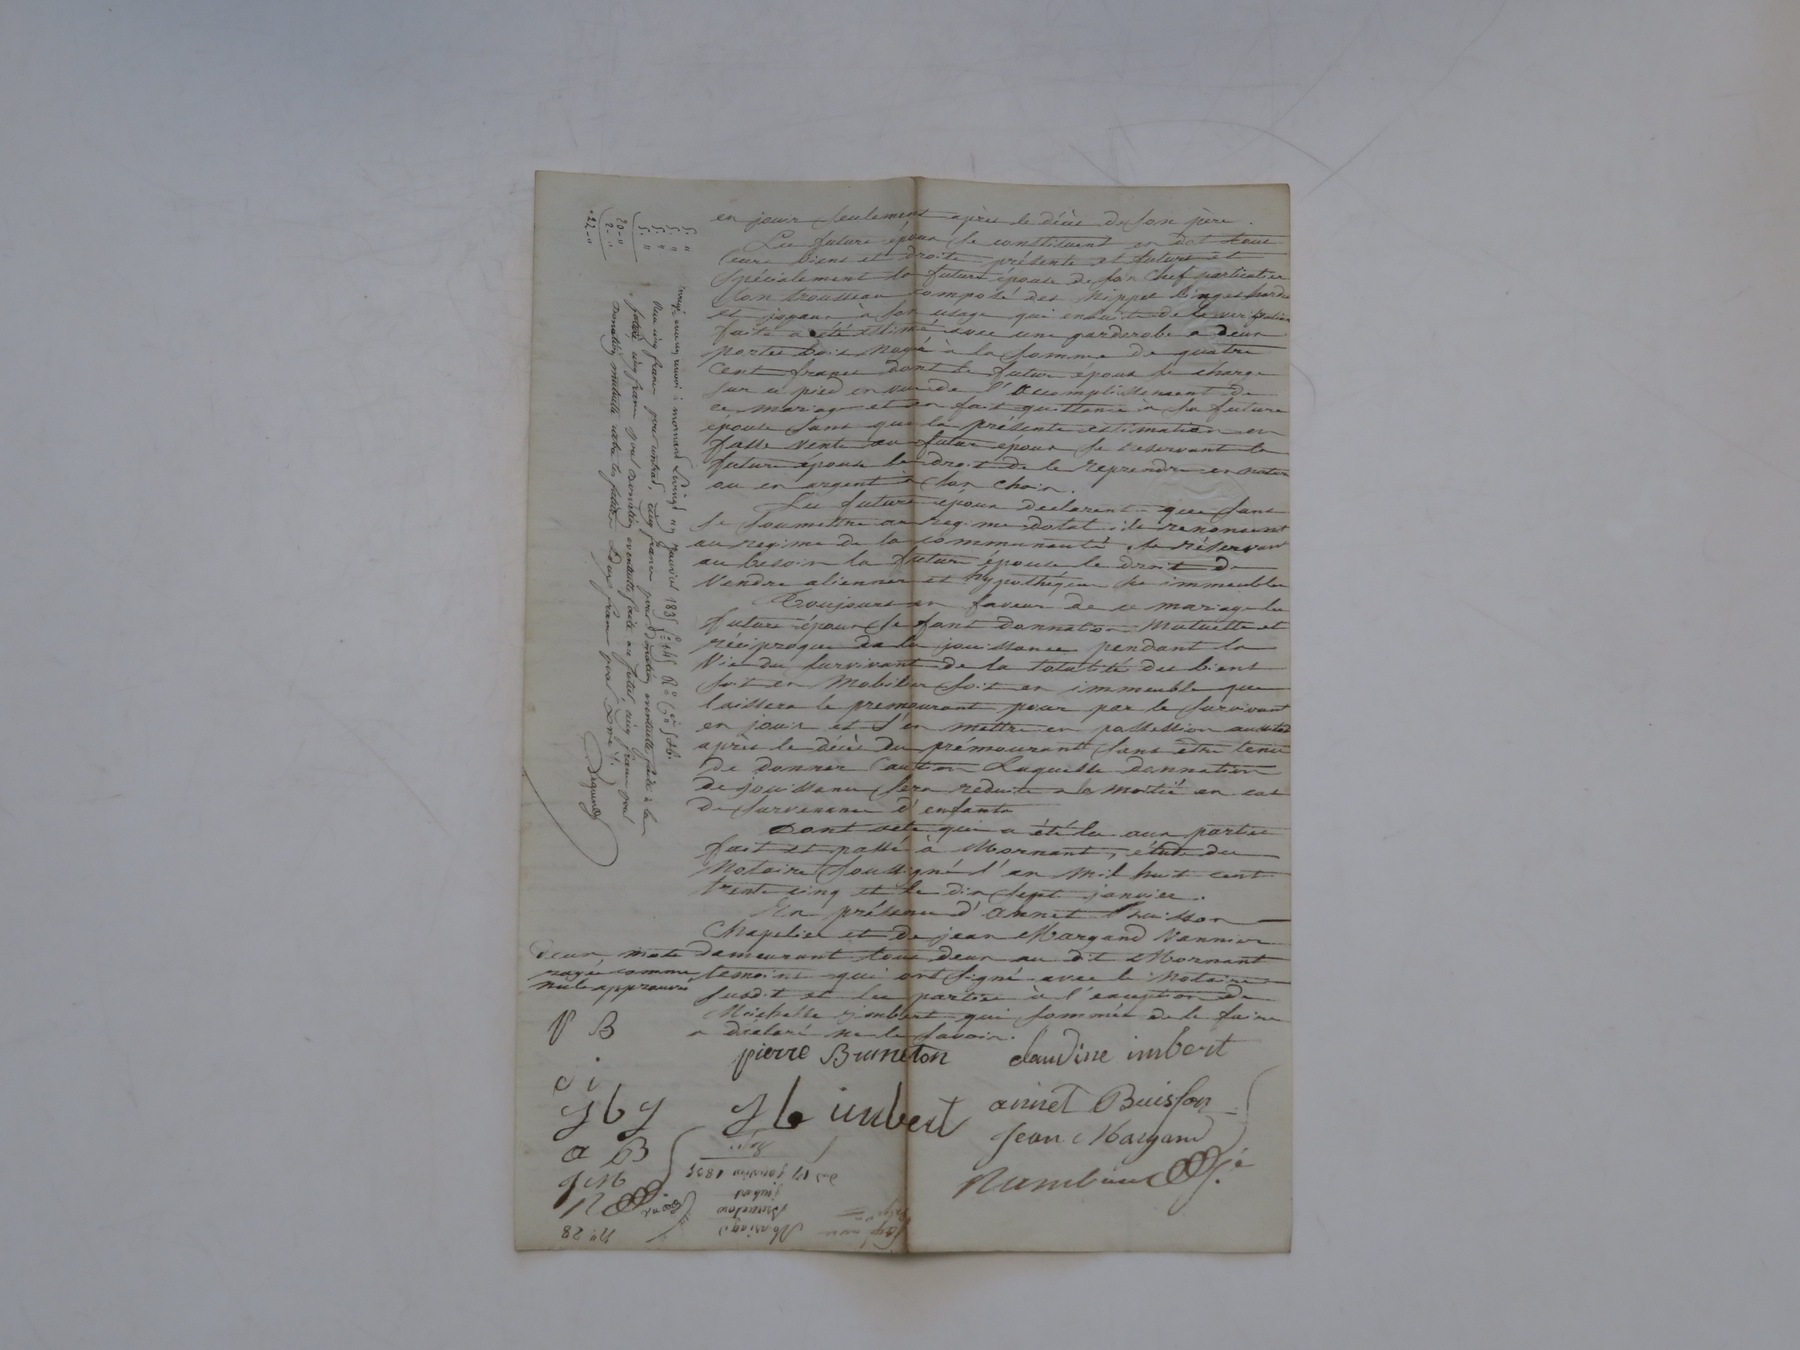 en jouir seulement après le décès de son père.
Les futurs époux se constituent en dot tous
leurs biens et droits présents et futurs et
spécialement la future épouse de son chef particulier
son trousseau composé des nippes linges hardes
et joyaux à son usage qui ensuite de la verification
faite a été estimé avec une garderobe a deux
portes bois noyer à la somme de quatre
cent francs dont le futur époux se charge
sur ce pied en vue de l'accomplissement de
ce mariage et en fait quittance à sa future
épouse sans que la présente estimation en
fasse vente au futur époux se reservant la
future épouse le droit de le reprendre en nature
ou en argent à son choix.
Les futurs époux declarent que sans
se soumettre au regime dotal ils renoncent
au regime de la communauté se réservant
au besoin la future épouse le droit de
vendre aliener et hypothéquer ses immeubles
Toujours en faveur de ce mariage les
futurs époux se font donnation mutuelle et
réciproque de la jouissance pendant la
vie du survivant de la totalité des biens
soit en mobilier soit en immeuble que
laissera le premourant pour par le survivant
en jouir et s'en mettre en possession aussitot
après le décès du prémourant sans etre tenu
de donner caution Laquelle donnation
de jouissance sera reduite a la moitié en cas
de survenance d'enfants
Dont acte qui a été lu aux parties
fait et passé à Mornant, étude du
Notaire soussigné l'an mil huit cent
trente cinq et le dix sept janvier.
En présence d'annet Buisson
Chapelier et de jean Margand Vannier
demeurant tous deux au dit Mornant
temoins qui ont signé avec le Notaire
susdit et les parties à l'exception de
Michelle imbert qui sommée de le faire
a déclaré ne le savoir.
deux mots
rayés comme
nuls approuvés
P B
c i
a B
J M
pierre Bruneton claudine imbert
imbert
annet Buisson
Jean Margand
Enregistré à mornant Le vingt un Janvier 1835
Reçu cinq francs pour contrat, cinq francs pour donation eventuelle faite à la
future, cinq francs pour donation eventuelle faite au futur, cinq francs pour
donation mutuelle entre les futurs & deux francs pour dixme.
5. "
5. "
5. "
5. "
20-"
2-"
22-"
N° 28
Mariage
Bruneton
imbert
du 17 janvier 1835